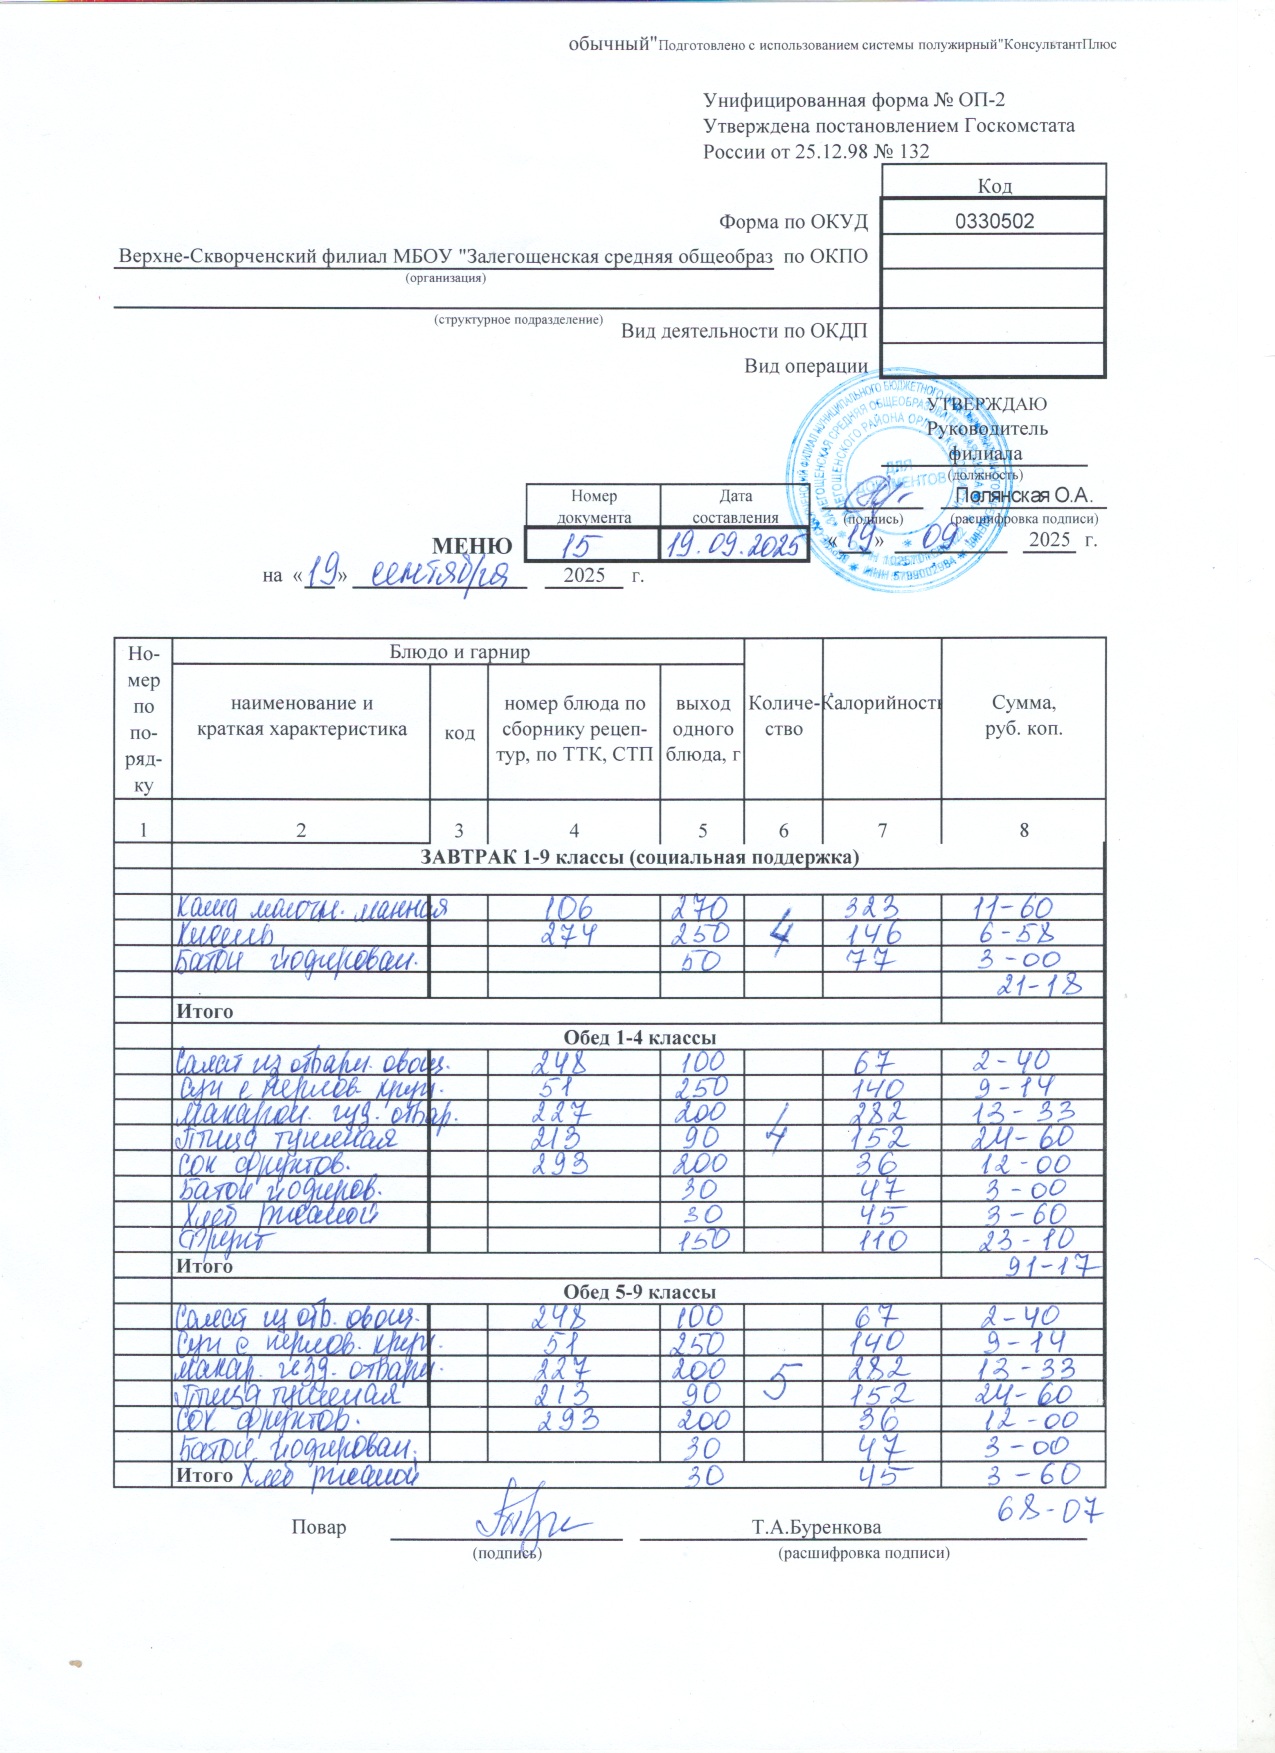 обычный"Подготовлено с использованием системы полужирный"КонсультантПлюс
Унифицированная форма № ОП-2
Утверждена постановлением Госкомстата
России от 25.12.98 № 132
Код
Форма по ОКУД 0330502
Верхне-Скворченский филиал МБОУ "Залегощенская средняя общеобраз по ОКПО
(организация)
(структурное подразделение)
Вид деятельности по ОКДП
Вид операции
УТВЕРЖДАЮ
Руководитель
филиала
(должность)
ДЛЯ ДОКУМЕНТОВ
Полянская О.А.
(подпись) (расшифровка подписи)
Номер документа Дата составления
МЕНЮ 15 19.09.2025 «19» 09 2025 г.
на «19» сентября 2025 г.
Но-мер по по-ряд-ку Блюдо и гарнир Количе-ство Калорийность Сумма, руб. коп.
наименование и краткая характеристика код номер блюда по сборнику рецеп-тур, по ТТК, СТП выход одного блюда, г
1 2 3 4 5 6 7 8
ЗАВТРАК 1-9 классы (социальная поддержка)
Каша молочн. манная 106 270 323 11-60
Кисель 274 250 4 146 6-58
Батон йодирован. 50 77 3-00
21-18
Итого
Обед 1-4 классы
Салат из отварн. овощ. 248 100 67 2-40
Суп с перлов. круп. 51 250 140 9-14
Макарон. изд. отвар. 227 200 282 13-33
Птица тушеная 213 90 4 152 24-60
Сок фруктов. 293 200 36 12-00
Батон йодиров. 30 47 3-00
Хлеб ржаной 30 45 3-60
Фрукт 150 110 23-10
Итого 91-17
Обед 5-9 классы
Салат из отв. овощ. 248 100 67 2-40
Суп с перлов. круп. 51 250 140 9-14
Макар. изд. отварн. 227 200 5 282 13-33
Птица тушеная 213 90 152 24-60
Сок фруктов. 293 200 36 12-00
Батон йодирован. 30 47 3-00
Итого Хлеб ржаной 30 45 3-60
68-07
Повар Т.А.Буренкова
(подпись) (расшифровка подписи)